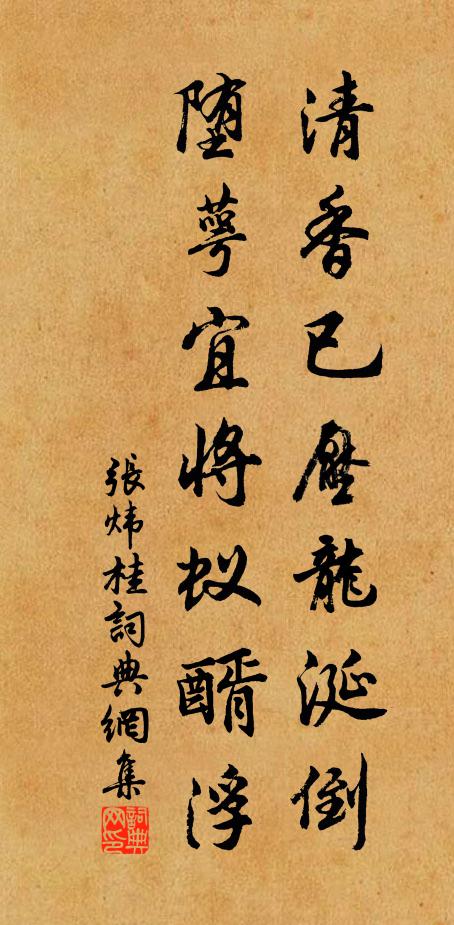 清香已壓龍涎倒
堕萼宜將蚁醑浮
張炜桂詞典網集
詞典
网印